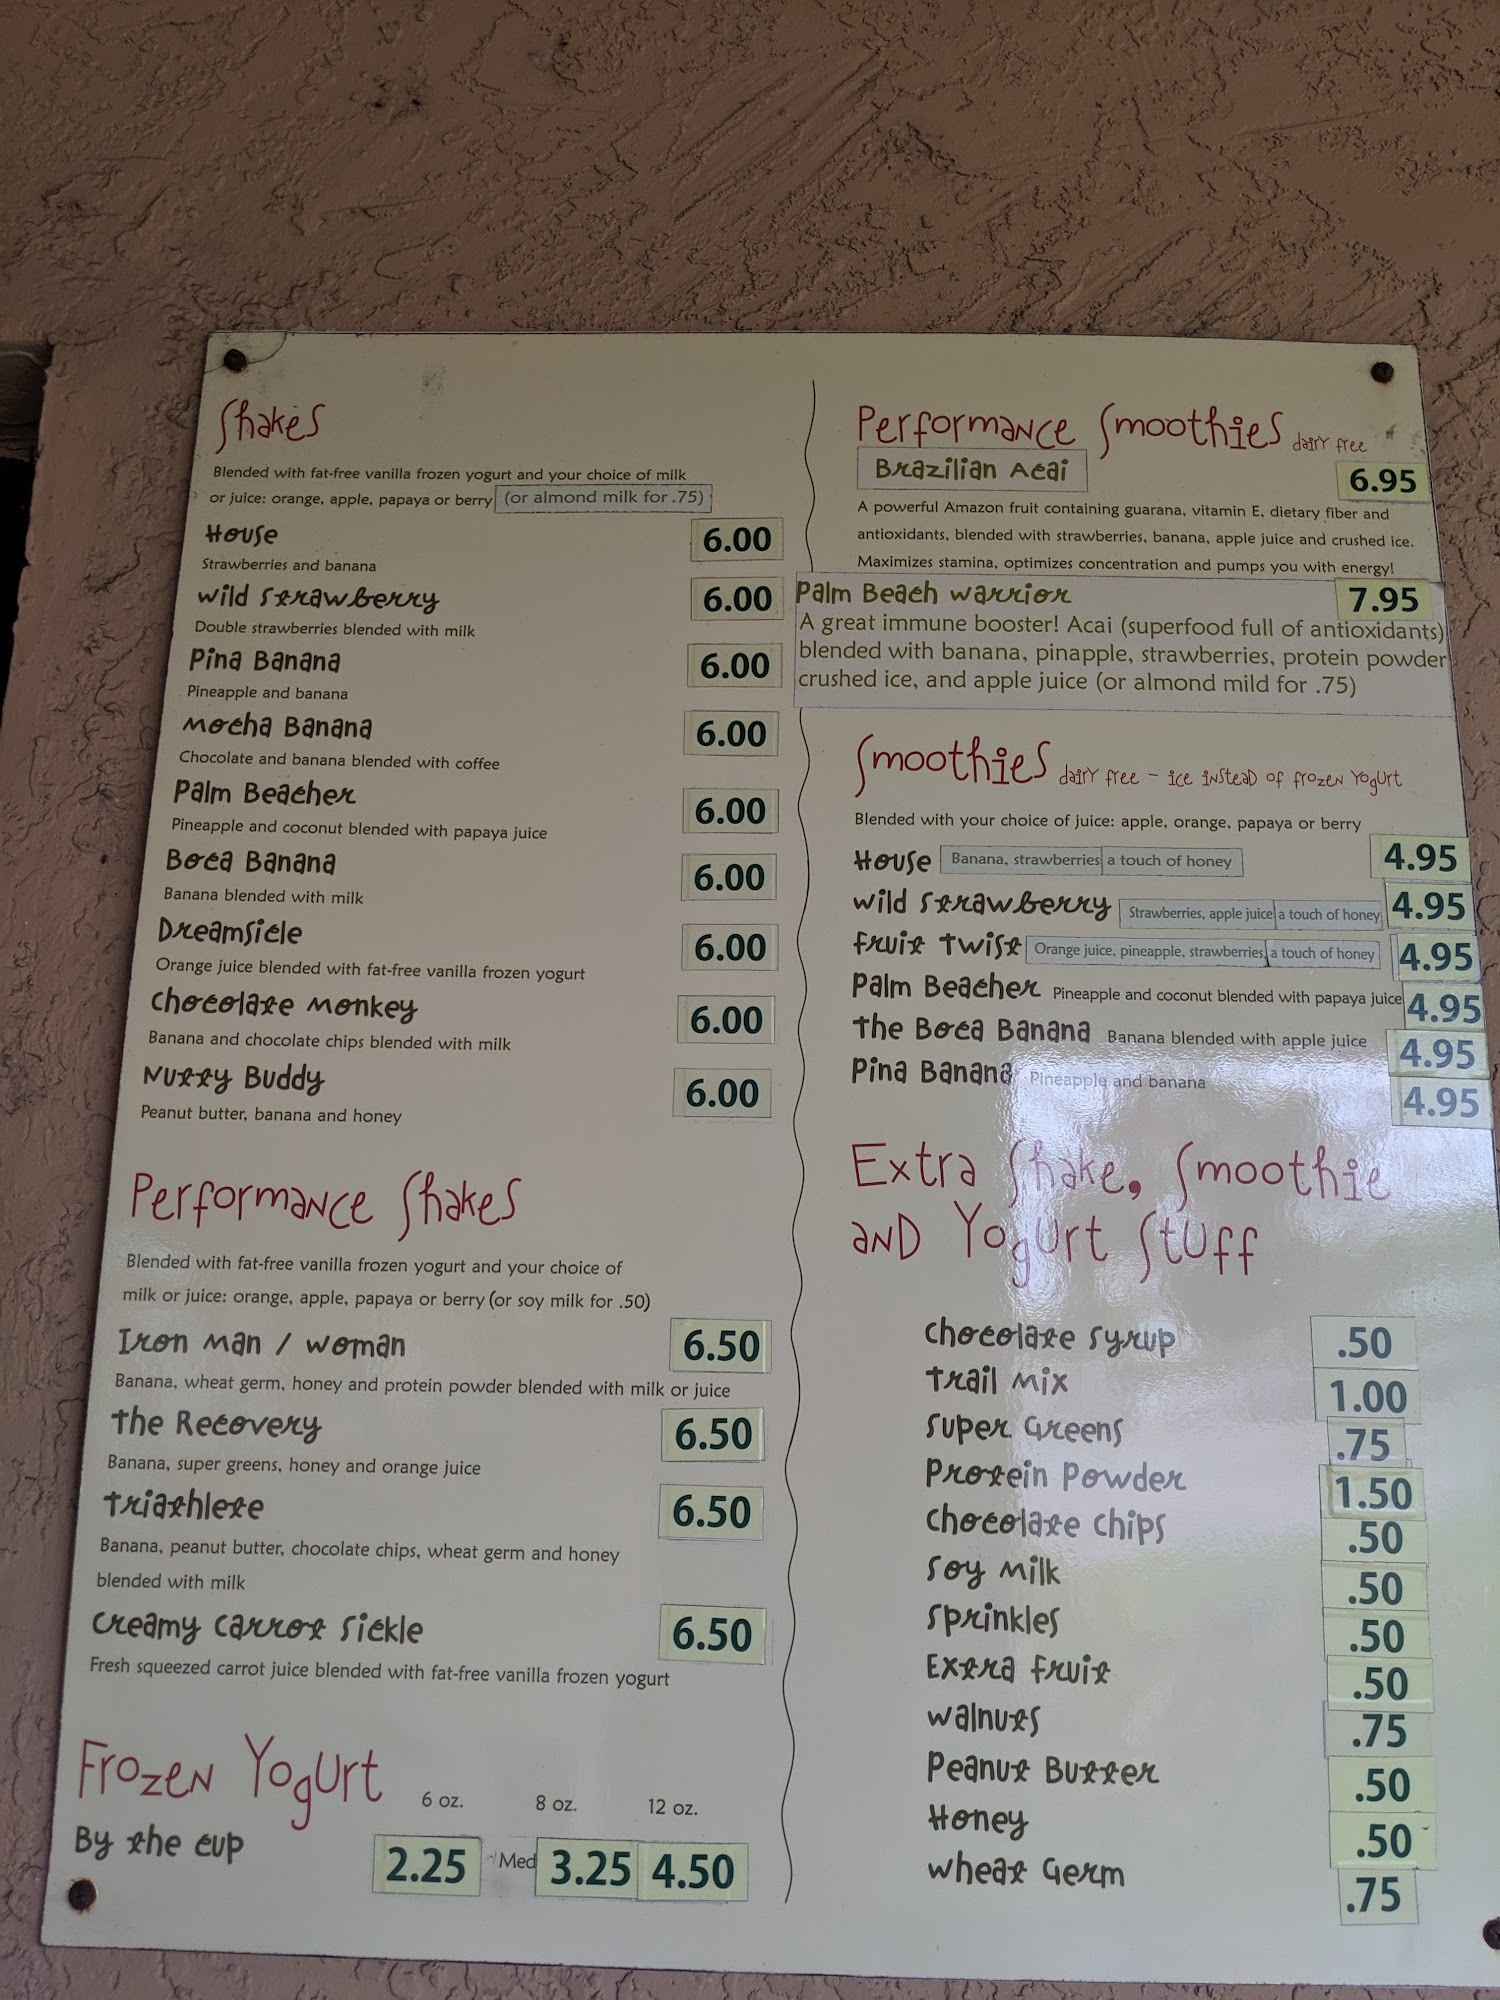 Shakes
Blended with fat-free vanilla frozen yogurt and your choice of milk
or juice: orange, apple, papaya or berry (or almond milk for .75)
House 6.00
Strawberries and banana
Wild Strawberry 6.00
Double strawberries blended with milk
Pina Banana 6.00
Pineapple and banana
Mocha Banana 6.00
Chocolate and banana blended with coffee
Palm Beacher 6.00
Pineapple and coconut blended with papaya juice
Boca Banana 6.00
Banana blended with milk
Dreamsicle 6.00
Orange juice blended with fat-free vanilla frozen yogurt
Chocolate Monkey 6.00
Banana and chocolate chips blended with milk
Nutty Buddy 6.00
Peanut butter, banana and honey
Performance Shakes
Blended with fat-free vanilla frozen yogurt and your choice of
milk or juice: orange, apple, papaya or berry (or soy milk for .50)
Iron Man / Woman 6.50
Banana, wheat germ, honey and protein powder blended with milk or juice
The Recovery 6.50
Banana, super greens, honey and orange juice
Triathlete 6.50
Banana, peanut butter, chocolate chips, wheat germ and honey
blended with milk
Creamy Carrot Sickle 6.50
Fresh squeezed carrot juice blended with fat-free vanilla frozen yogurt
Frozen Yogurt 6 oz. 8 oz. 12 oz.
By the cup 2.25 Med 3.25 4.50
Performance Smoothies dairy free
Brazilian Acai 6.95
A powerful Amazon fruit containing guarana, vitamin E, dietary fiber and
antioxidants, blended with strawberries, banana, apple juice and crushed ice.
Maximizes stamina, optimizes concentration and pumps you with energy!
Palm Beach Warrior 7.95
A great immune booster! Acai (superfood full of antioxidants)
blended with banana, pinapple, strawberries, protein powder
crushed ice, and apple juice (or almond mild for .75)
Smoothies dairy free - ice instead of frozen yogurt
Blended with your choice of juice: apple, orange, papaya or berry
House Banana, strawberries a touch of honey 4.95
Wild Strawberry Strawberries, apple juice a touch of honey 4.95
Fruit Twist Orange juice, pineapple, strawberries, a touch of honey 4.95
Palm Beacher Pineapple and coconut blended with papaya juice 4.95
The Boca Banana Banana blended with apple juice 4.95
Pina Banana Pineapple and banana 4.95
Extra Shake, Smoothie
and Yogurt Stuff
Chocolate Syrup .50
Trail Mix 1.00
Super Greens .75
Protein Powder 1.50
Chocolate Chips .50
Soy Milk .50
Sprinkles .50
Extra Fruit .50
Walnuts .75
Peanut Butter .50
Honey .50
Wheat Germ .75